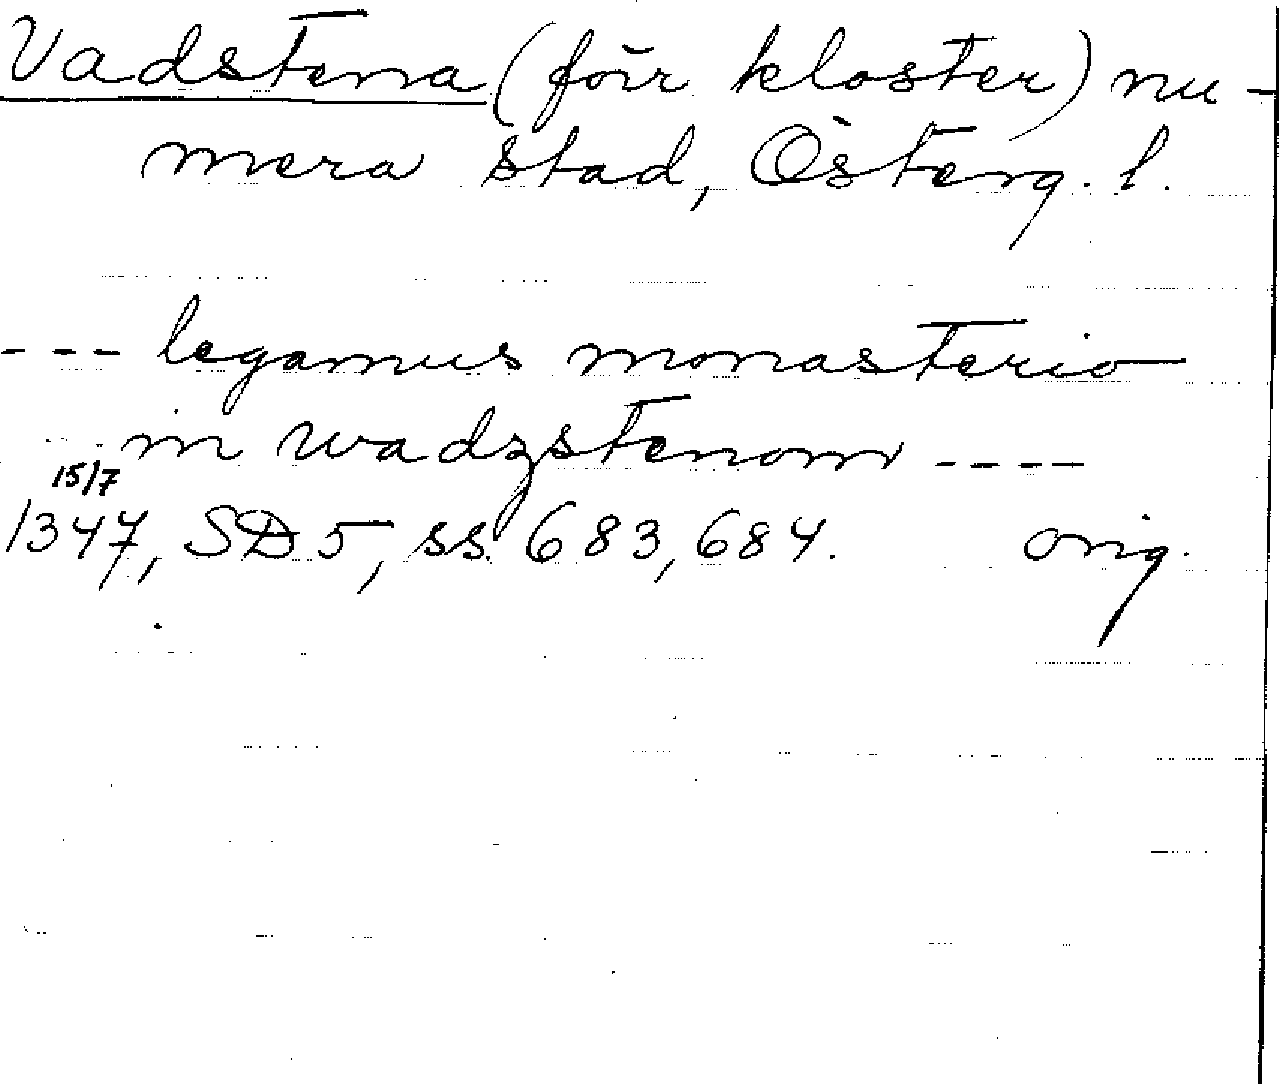 Vadstena (förr kloster) nu-
mera stad, Österg. l.
--- legamus monasterio
in wadzstenom ----
15/7
1347, SD 5, ss. 683, 684. orig.